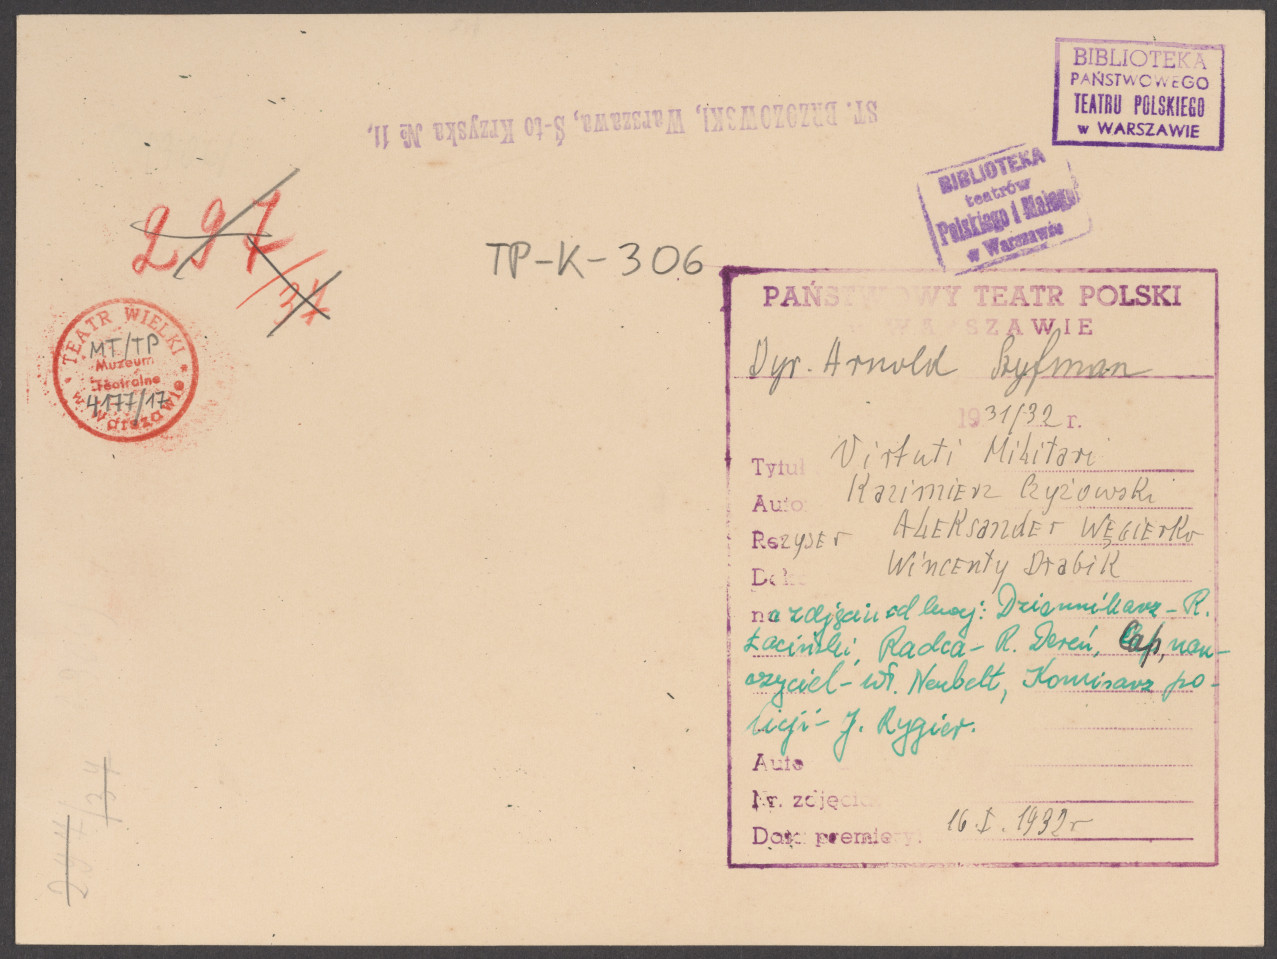 BIBLIOTEKA
PAŃSTWOWEGO
TEATRU POLSKIEGO
w WARSZAWIE
ST. BRZOZOWSKI, Warszawa, Ś-to Krzyska № 11,
BIBLIOTEKA
teatrów
Polskiego i Małego
w Warszawie
297
TP-K-306
TEATR WIELKI
MT/TP
Muzeum
Teatralne
4177/17
w Warszawie
PAŃSTWOWY TEATR POLSKI
WARSZAWIE
Dyr. Arnold Szyfman
1931/32 r.
Tytuł Virtuti Militari
Autor Kazimierz Czyżowski
Reżyser ALEKSANDER WĘGIERKO
Dek. Wincenty Drabik
na zdjęciu od lewej: Dziennikarz - R.
Łaciński, Radca - R. Dereń, Cap, nau-
czyciel - wł. Neubelt, Komisarz po-
licji - J. Rygier.
Auto
Nr. zdjęcia
Data premiery: 16.I.1932 r
294
134